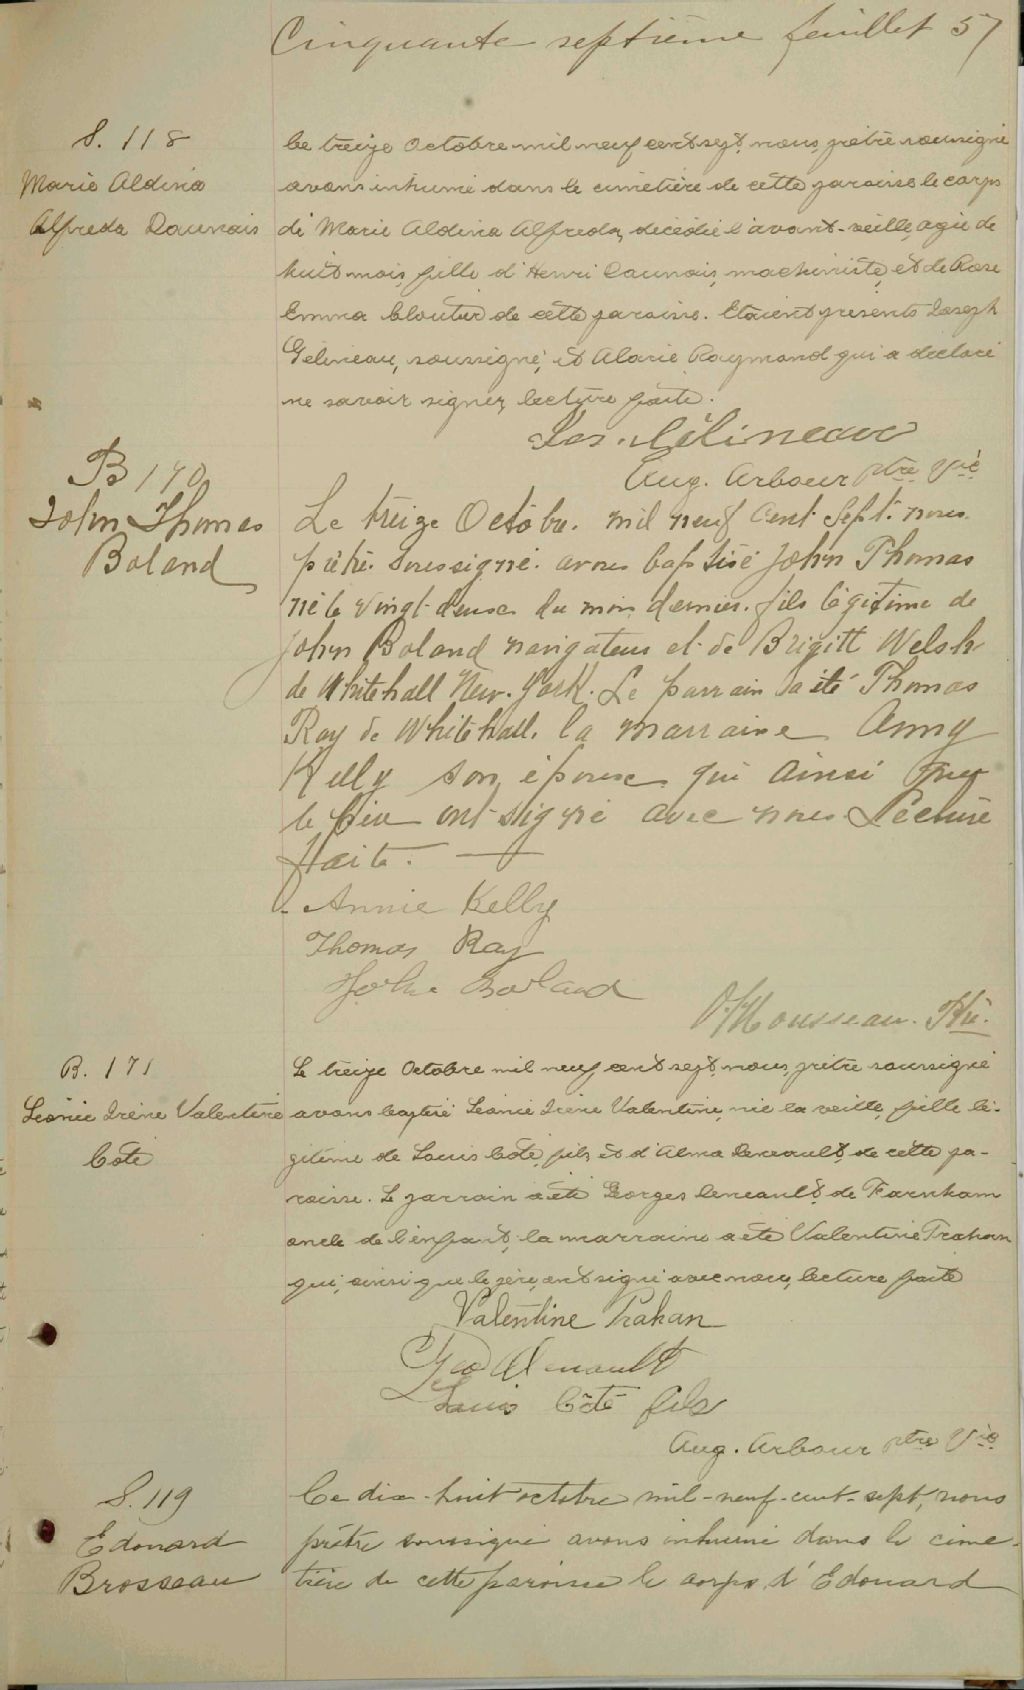 Cinquante septième feuillet 57
S. 118
Marie Aldina
Alfreda Daunais
Le treize Octobre mil neuf cent sept, nous, prêtre soussigné
avons inhumé dans le cimetière de cette paroisse le corps
de Marie Aldina Alfreda, décédée l'avant-veille, agée de
huit mois, fille d'Henri Daunais, machiniste, et de Rose
Emma Cloutier de cette paroisse. Etaient présents Joseph
Gélineau, soussigné, et Alarie Raymond qui a déclaré
ne savoir signer, lecture faite.
Jos. Gélineau
Aug. Arbour ptre Vic
B 170
John Thomas
Boland
Le treize Octobre. mil neuf cent sept. nous
prêtre. soussigné. avons baptisé John Thomas
né le vingt-deux du mois dernier. fils légitime de
John Boland navigateur et de Brigitt Welsh
de Whitehall New-York. Le parrain a été Thomas
Ray de Whitehall. la marraine Anny
Kelly son épouse qui ainsi que
le père ont signé avec nous Lecture
faite.
Annie Kelly
Thomas Ray
John Boland
Mousseau. Ptre.
B. 171
Léonie Irène Valentine
Coté
Le treize Octobre mil neuf cent sept, nous, prêtre soussigné
avons baptisé Léonie Irène Valentine, née la veille, fille lé-
gitime de Louis Coté, fils et d'Alma Deneault, de cette pa-
roisse. Le parrain a été Georges Deneault, de Farnham
oncle de l'enfant, la marraine a été Valentine Trahan
qui, ainsi que le père, ont signé avec nous, lecture faite
Valentine Trahan
Geo
Louis Côté fils
Aug. Arbour ptre Vic
S. 119
Edouard
Brosseau
Ce dix-huit octobre mil-neuf-cent-sept, nous
prêtre soussigné avons inhumé dans le cime-
tière de cette paroisse le corps d'Edouard